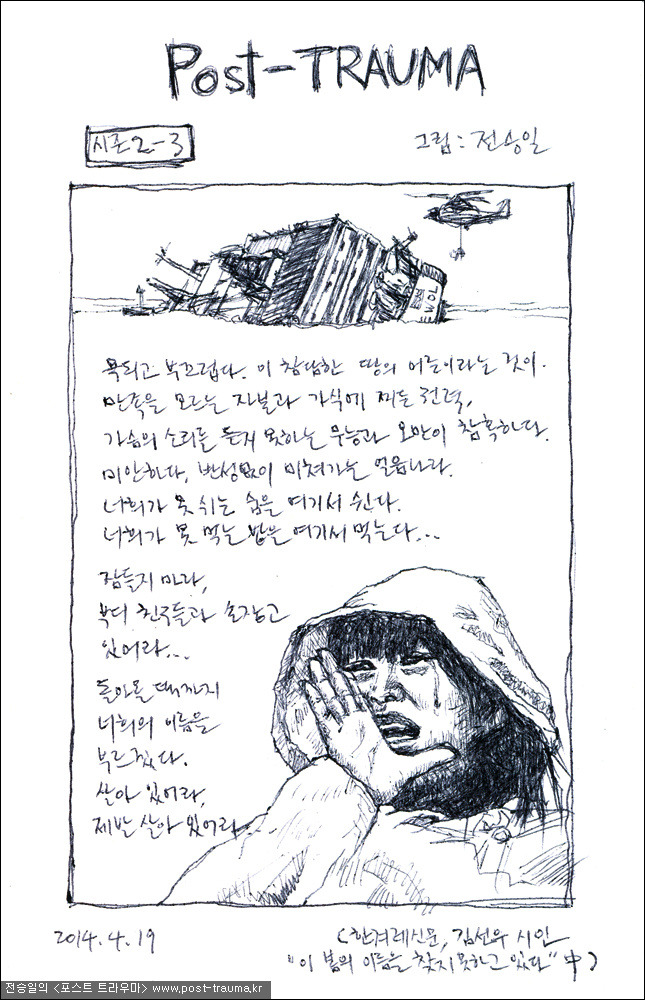 Post-TRAUMA
시즌2-3
그림: 전승일
EWOL
욕되고 부끄럽다. 이 참담한 땅의 어른이라는 것이.
만족을 모르는 자본과 가식에 찌든 권력,
가슴의 소리를 듣지 못하는 무능과 오만이 참혹하다.
미안하다, 반성없이 미쳐가는 얼음나라.
너희가 못 쉬는 숨을 여기서 쉰다.
너희가 못 먹는 밥을 여기서 먹는다...
잠들지 마라,
부디 친구들과 손잡고
있어라...
돌아올 때까지
너희의 이름을
부르겠다.
살아 있어라,
제발 살아 있어라
2014.4.19
<한겨레신문, 김선우 시인
"이 봄의 이름을 찾지못하고 있다" 中>
전승일의 <포스트 트라우마> www.post-trauma.kr